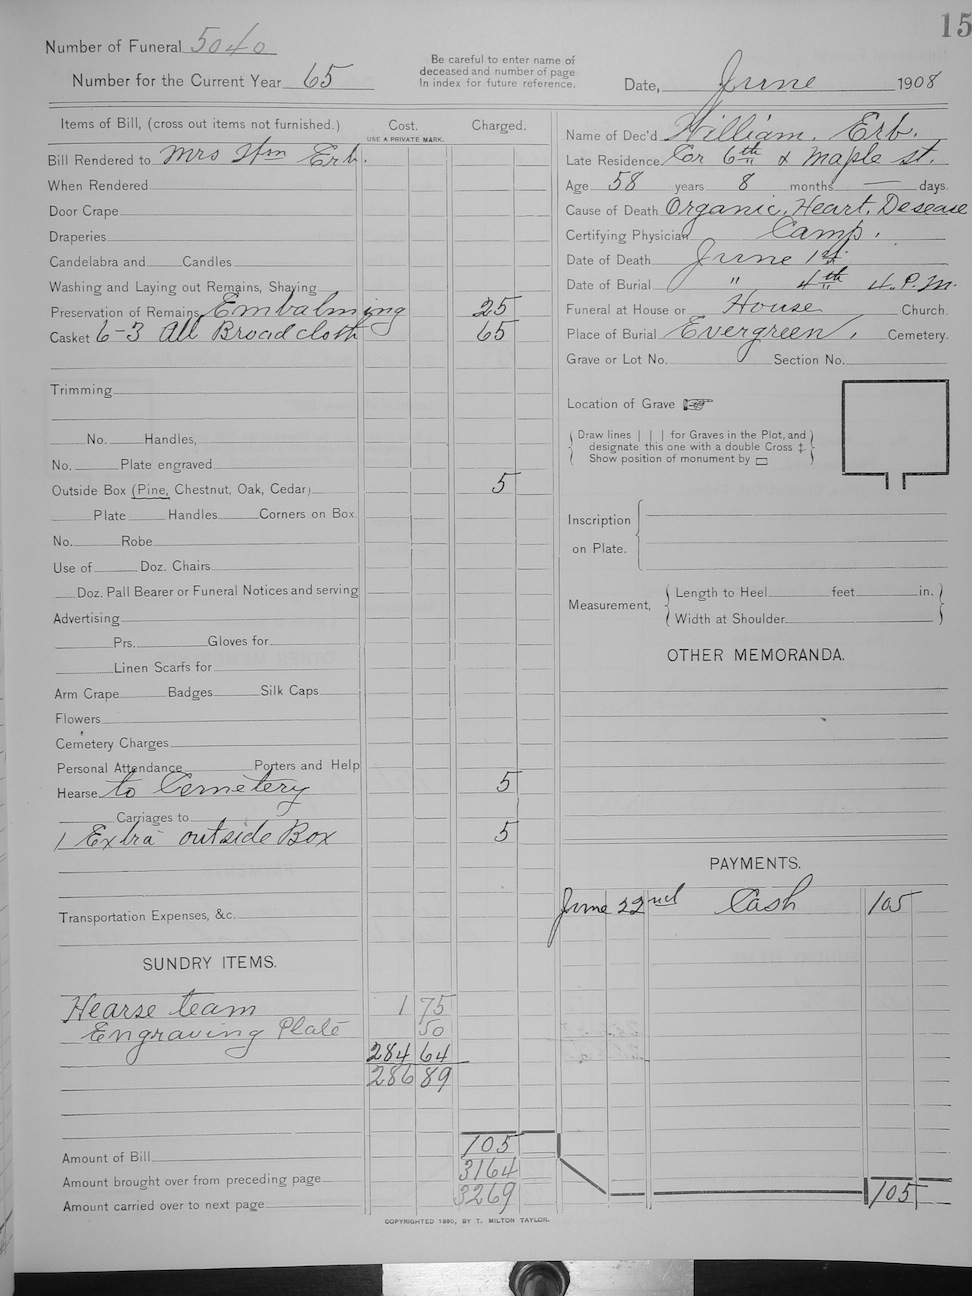 15
Number of Funeral 5040
Number for the Current Year 65
Be careful to enter name of
deceased and number of page
In index for future reference.
Date, June 1908
Items of Bill, (cross out items not furnished.) Cost. Charged.
USE A PRIVATE MARK.
Bill Rendered to Mrs Wm Erb.
When Rendered
Door Crape
Draperies
Candelabra and Candles
Washing and Laying out Remains, Shaving
Preservation of Remains Embalming 25
Casket 6-3 All Broadcloth 65
Trimming
No. Handles,
No. Plate engraved
Outside Box (Pine, Chestnut, Oak, Cedar) 5
Plate Handles Corners on Box.
No. Robe
Use of Doz. Chairs
Doz. Pall Bearer or Funeral Notices and serving
Advertising
Prs. Gloves for
Linen Scarfs for
Arm Crape Badges Silk Caps
Flowers
Cemetery Charges
Personal Attendance Porters and Help
Hearse to Cemetery 5
Carriages to
1 Extra outside Box 5
Transportation Expenses, &c.
SUNDRY ITEMS.
Hearse team 1 75
Engraving Plate 50
284 64
286 89
Amount of Bill 105
Amount brought over from preceding page 3164
Amount carried over to next page 3269
Name of Dec'd William. Erb.
Late Residence Cor 6th & Maple st.
Age 58 years 8 months — days.
Cause of Death Organic, Heart, Desease
Certifying Physician Camp.
Date of Death June 1st
Date of Burial " 4th 4. P.M.
Funeral at House or House Church.
Place of Burial Evergreen, Cemetery.
Grave or Lot No. Section No.
Location of Grave
Draw lines | | | for Graves in the Plot, and
designate this one with a double Cross ‡.
Show position of monument by ▭
Inscription
on Plate.
Measurement, Length to Heel feet in.
Width at Shoulder
OTHER MEMORANDA.
PAYMENTS.
June 22nd Cash 105
105
COPYRIGHTED 1890, BY T. MILTON TAYLOR.